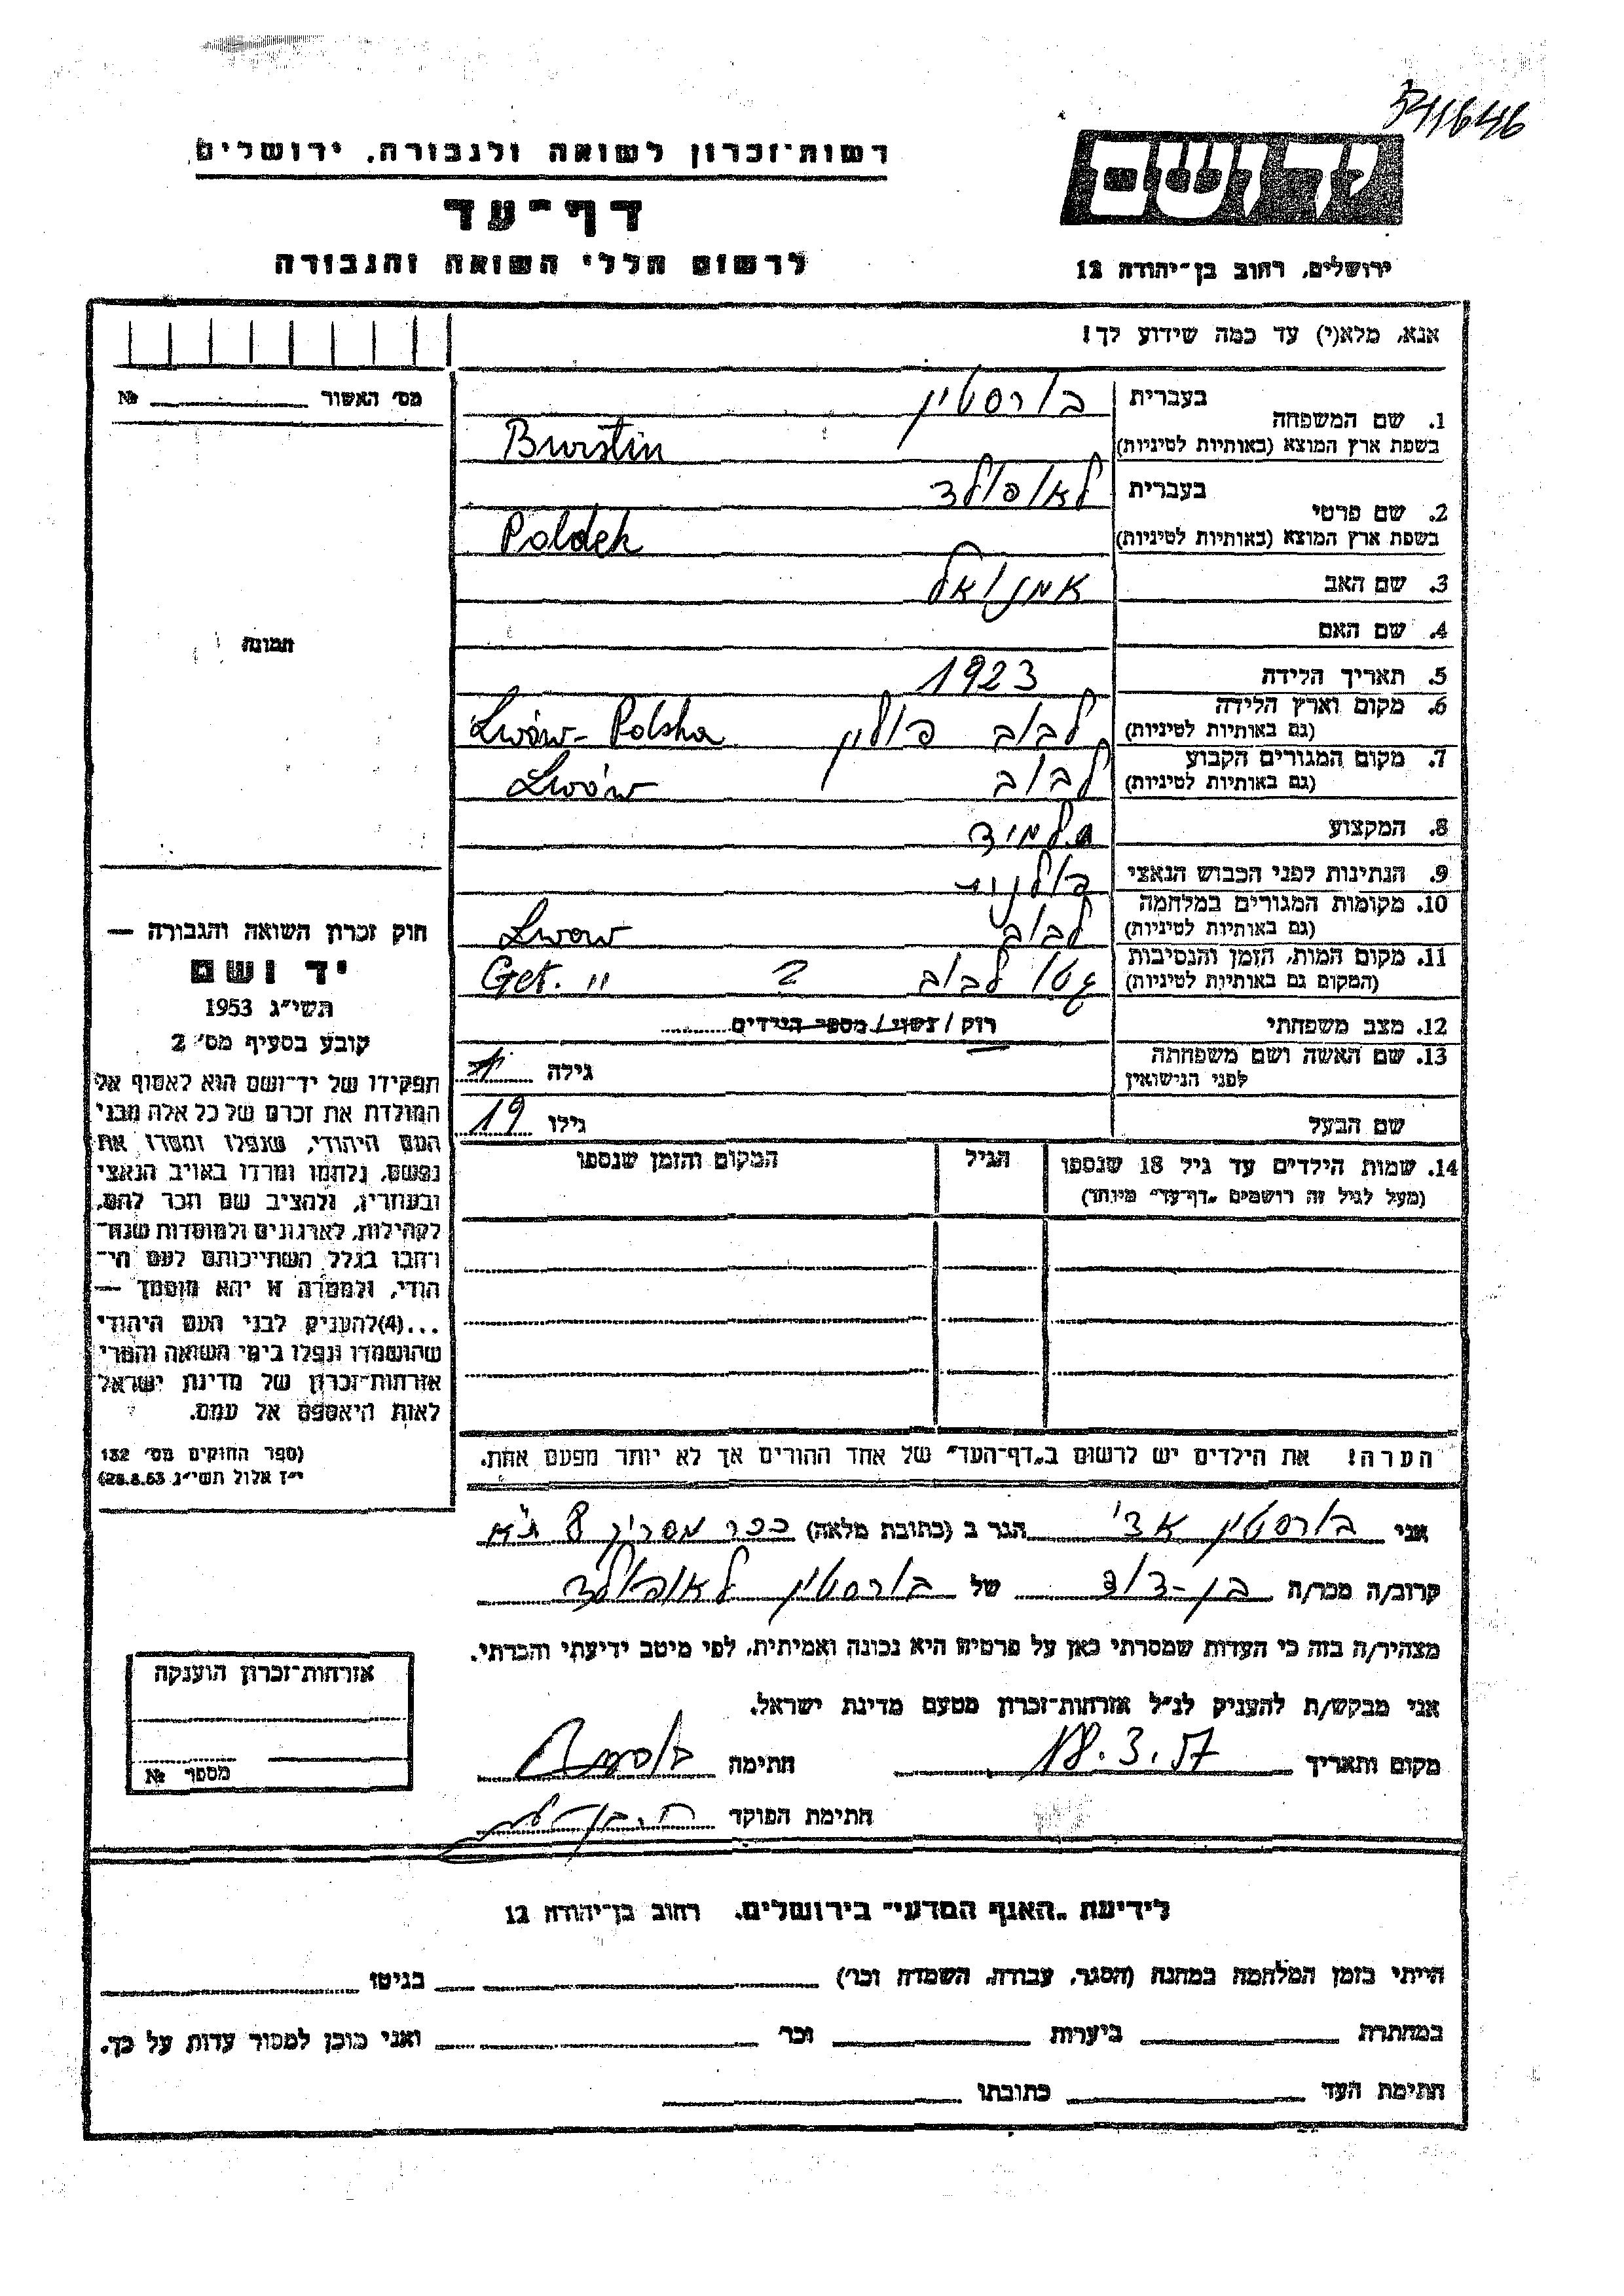 541646
רשות־זכרון לשואה ולגבורה, ירושלים
יד ושם
דף־עד
לרשום חללי השואה והגבורה
ירושלים, רחוב בן־יהודה 12
אנא, מלא(י) עד כמה שידוע לך!
מס׳ האשור № 
1. שם המשפחה בעברית בורסטין
בשפת ארץ המוצא (באותיות לטיניות) Burstin
2. שם פרטי בעברית לאופולד
בשפת ארץ המוצא (באותיות לטיניות) Poldek
3. שם האב אמנואל
4. שם האם
תמונה
5. תאריך הלידה 1923
6. מקום וארץ הלידה (גם באותיות לטיניות) לבוב פולין Lwów-Polska
7. מקום המגורים הקבוע (גם באותיות לטיניות) לבוב Lwów
8. המקצוע תלמיד
9. הנתינות לפני הכבוש הנאצי פולנית
10. מקומות המגורים במלחמה (גם באותיות לטיניות) לבוב Lwow
11. מקום המות, הזמן והנסיבות (המקום גם באותיות לטיניות) גטו לבוב 2 Get. "
12. מצב משפחתי רוק / נשוי / מספר הילדים
13. שם האשה ושם משפחתה לפני הנישואין גילה
שם הבעל גילו 19
14. שמות הילדים עד גיל 18 שנספו הגיל המקום והזמן שנספו
(מעל לגיל זה רושמים „דף־עד״ מיוחד)
חוק זכרון השואה והגבורה —
יד ושם
תשי״ג 1953
קובע בסעיף מס׳ 2
תפקידו של יד־ושם הוא לאסוף אל
המולדת את זכרם של כל אלה מבני
העם היהודי, שנפלו ומסרו את
נפשם, נלחמו ומרדו באויב הנאצי
ובעוזריו, ולהציב שם וזכר להם,
לקהילות, לארגונים ולמוסדות שנח־
רבו בגלל השתייכותם לעם הי־
הודי, ולמטרה זו יהא מוסמך —
...(4) להעניק לבני העם היהודי
שהושמדו ונפלו בימי השואה והמרי
אזרחות־זכרון של מדינת ישראל
לאות היאספם אל עמם.
(ספר החוקים מס׳ 132
י״ז אלול תשי״ג 28.8.53)
הערה! את הילדים יש לרשום ב„דף־העד״ של אחד ההורים אך לא יותר מפעם אחת.
אני בורסטין אדי הגר ב (כתובת מלאה) ככר מסריק 8 ת"א
קרוב/ה מכר/ה בן-דוד של בורסטין לאופולד
מצהיר/ה בזה כי העדות שמסרתי כאן על פרטיה היא נכונה ואמיתית, לפי מיטב ידיעתי והכרתי.
אני מבקש/ת להעניק לנ״ל אזרחות־זכרון מטעם מדינת ישראל.
מקום ותאריך 18.3.57 חתימה
חתימת הפוקד
אזרחות־זכרון הוענקה
מספר №
לידיעת „האגף המדעי״ בירושלים, רחוב בן־יהודה 12
הייתי בזמן המלחמה במחנה (הסגר, עבודה, השמדה וכו׳) בגיטו
במחתרת ביערות וכו׳ ואני מוכן למסור עדות על כך.
חתימת העד כתובתו